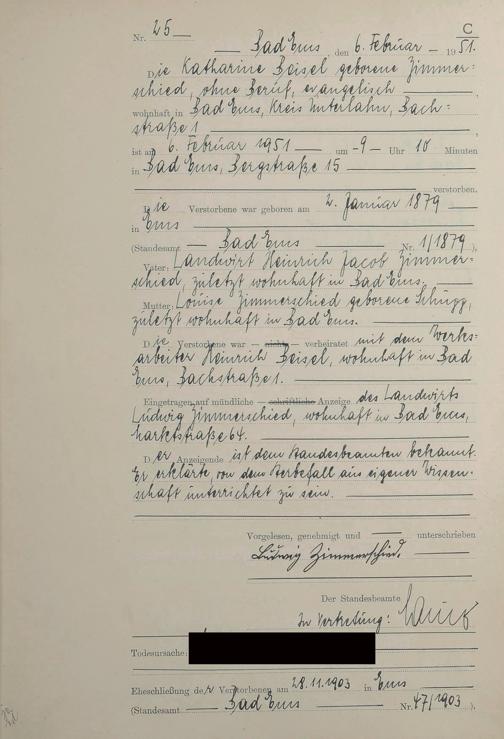 C
Nr. 25
Bad Ems, den 6. Februar 1951.
Die Katharine Beisel geborene Zimmer=
schied, ohne Beruf, evangelisch,
wohnhaft in Bad Ems, Kreis Unterlahn, Bach=
straße 1,
ist am 6. Februar 1951 um -9- Uhr 10 Minuten
in Bad Ems, Bergstraße 15
verstorben.
Die Verstorbene war geboren am 2. Januar 1879
in Ems
(Standesamt Bad Ems Nr. 1/1879).
Vater: Landwirt Heinrich Jacob Zimmer=
schied, zuletzt wohnhaft in Bad Ems.
Mutter: Louise Zimmerschied geborene Schupp,
zuletzt wohnhaft in Bad Ems.
Die Verstorbene war - nicht - verheiratet mit dem Werks=
arbeiter Heinrich Beisel, wohnhaft in Bad
Ems, Bachstraße 1.
Eingetragen auf mündliche - schriftliche - Anzeige des Landwirts
Ludwig Zimmerschied, wohnhaft in Bad Ems,
Marktstraße 64.
Der Anzeigende ist dem Standesbeamten bekannt.
Er erklärte, von dem Sterbefall aus eigener Wissen=
schaft unterrichtet zu sein.
Vorgelesen, genehmigt und unterschrieben
Ludwig Zimmerschied.
Der Standesbeamte
In Vertretung:
Todesursache:
Eheschließung der Verstorbenen am 28.11.1903 in Ems
(Standesamt Bad Ems Nr. 47/1903).